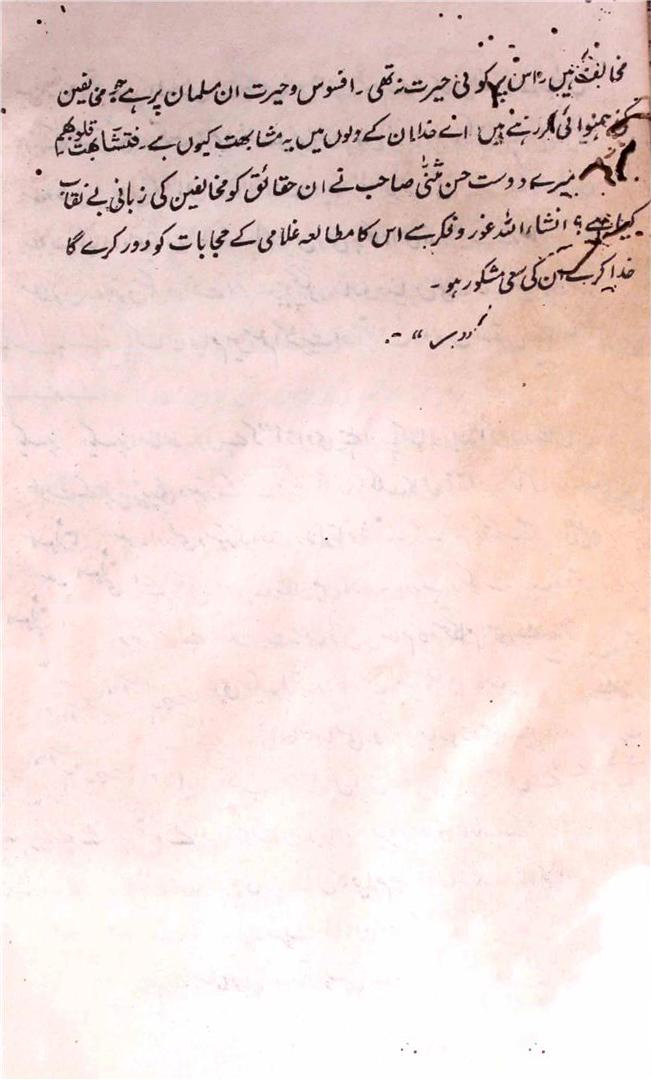 مخالف ہیں۔ اس پر کوئی حیرت نہ تھی۔ افسوس و حیرت ان مسلمان پر ہے جو مخالفین
کی ہمنوائی کر رہے ہیں۔ اے خدا ان کے دلوں میں یہ مشابہت کیوں ہے۔ فتشابهت قلوبهم
میرے دوست حسن مثنیٰ صاحب نے ان حقائق کو مخالفین کی زبانی بے نقاب
کیا ہے؟ انشاء اللہ غور و فکر سے اس کا مطالعہ غلامی کے حجابات کو دور کرے گا
خدا کرے ان کی سعی مشکور ہو۔